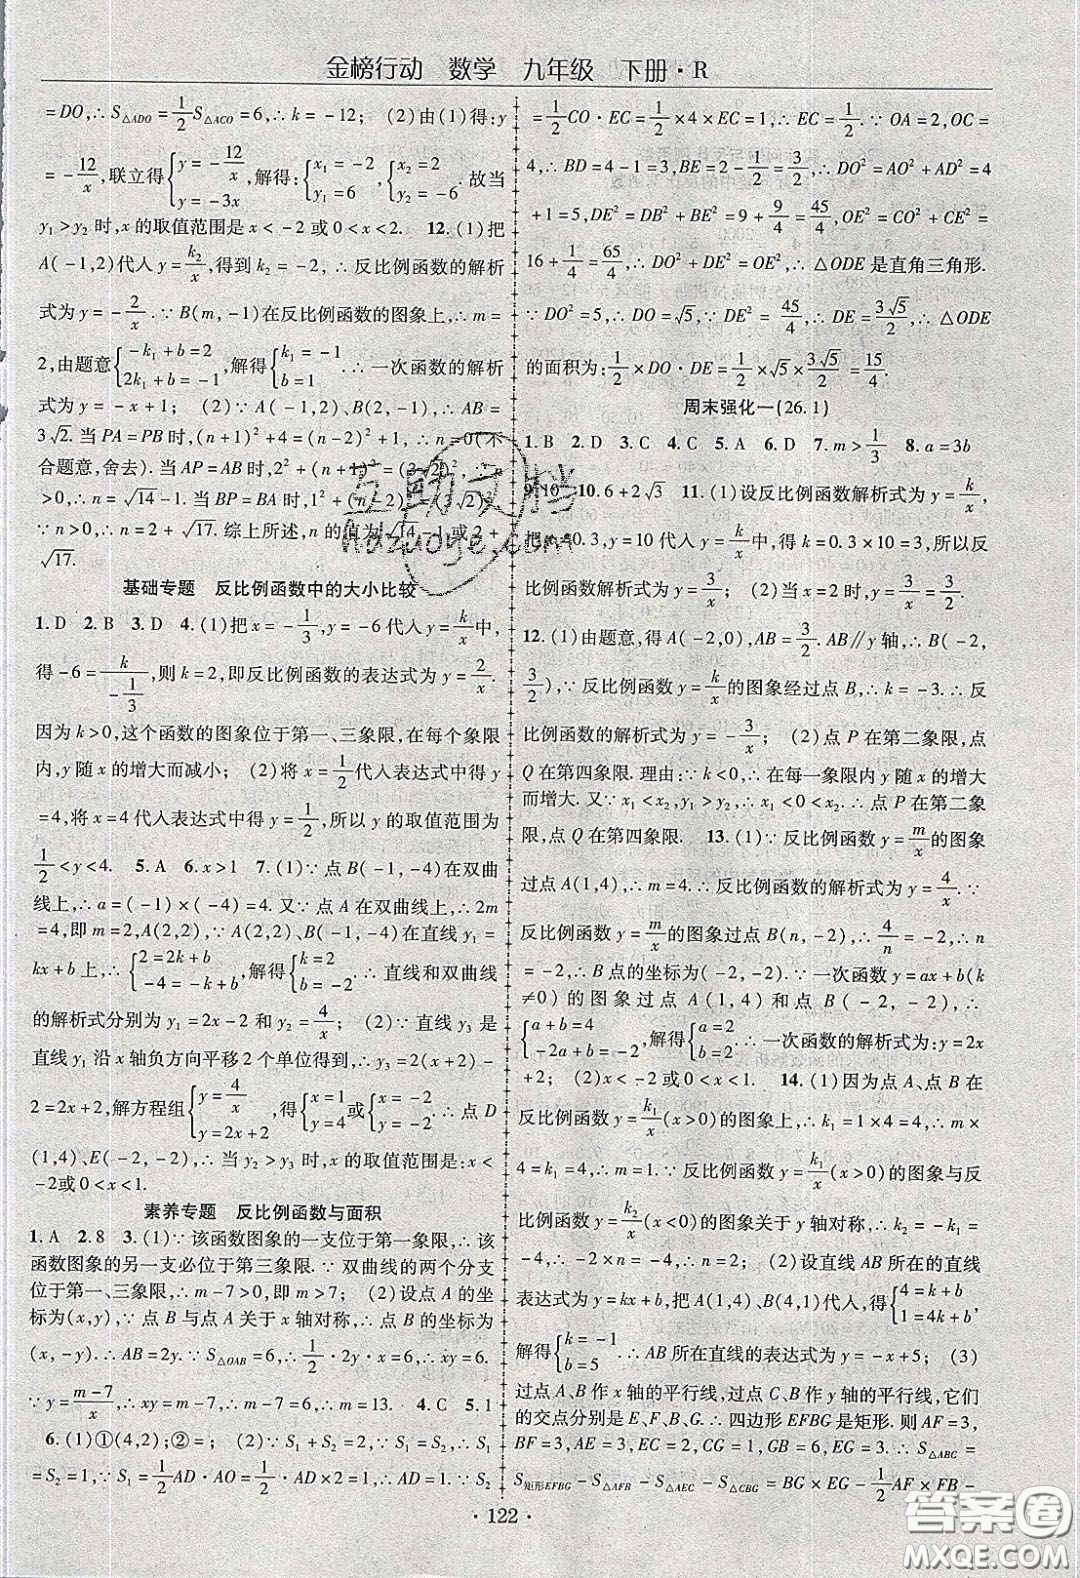 金榜行动 数学 九年级 下册·R
=DO,∴S△ADO=1/2S△ACO=6,∴k=-12; (2)由(1)得:y
=-12/x,联立得{y=-12/x, y=-3x},解得:{x₁=-2, y₁=6},{x₂=2, y₂=-6}.故当
y₁>y₂时,x的取值范围是x<-2或0<x<2. 12.(1)把
A(-1,2)代入y=k₂/x,得到k₂=-2,∴反比例函数的解析
式为y=-2/x.∵B(m,-1)在反比例函数的图象上,∴m=
2,由题意{-k₁+b=2, 2k₁+b=-1},解得{k₁=-1, b=1}.∴一次函数的解析
式为y=-x+1; (2)∵A(-1,2),B(2,-1),∴AB=
3√2.当PA=PB时,(n+1)²+4=(n-2)²+1,∴n=0(不
合题意,舍去).当AP=AB时,2²+(n+1)²=(3√2)²,∵n
>0,∴n=√14-1.当BP=BA时,1²+(n-2)²=(3√2)²,
∵n>0,∴n=2+√17.综上所述,n的值为√14-1或2+
√17.
基础专题 反比例函数中的大小比较
1.D 2.B 3.D 4.(1)把x=-1/3,y=-6代入y=k/x中,
得-6=k/(-1/3),则k=2,即反比例函数的表达式为y=2/x.
因为k>0,这个函数的图象位于第一、三象限,在每个象限
内,y随x的增大而减小; (2)将x=1/2代入表达式中得y
=4,将x=4代入表达式中得y=1/2,所以y的取值范围为
1/2<y<4. 5.A 6.x>1 7.(1)∵点B(-1,-4)在双曲
线上,∴a=(-1)×(-4)=4.又∵点A在双曲线上,∴2m
=4,即m=2,A(2,2),∵A(2,2),B(-1,-4)在直线y₁=
kx+b上,∴{2=2k+b, -4=-k+b},解得{k=2, b=-2}.∴直线和双曲线
的解析式分别为y₁=2x-2和y₂=4/x; (2)∵直线y₃是
直线y₁沿x轴负方向平移2个单位得到,∴y₃=2(x+2)-
2=2x+2,解方程组{y=4/x, y=2x+2},得{x=1, y=4}或{x=-2, y=-2}.∴点D
(1,4),E(-2,-2),∴当y₂>y₃时,x的取值范围是:x<
-2或0<x<1.
素养专题 反比例函数与面积
1.A 2.8 3.(1)∵该函数图象的一支位于第一象限,∴该
函数图象的另一支必位于第三象限.∵双曲线的两个分支
位于第一、三象限,∴m-7>0,∴m>7; (2)设点A的坐
标为(x,y),∵点B与点A关于x轴对称,∴点B的坐标为
(x,-y).∴AB=2y.∵S△OAB=6,∴1/2·2y·x=6.∴xy=6.
∵y=(m-7)/x,∴xy=m-7=6,∴m=13. 4.C 5.1
6.(1)①(4,2);②=; (2)∵S₁+S₂=2,∵S₁=S₂,∴S₁
=S₂=1,∵S₁=1/2AD·AO=1/2AD×2=1,∴AD=1,∵S₂
=1/2CO·EC=1/2×4×EC=1,∴EC=1/2.∵OA=2,OC=
4,∴BD=4-1=3,BE=2-1/2=3/2,∴DO²=AO²+AD²=4
+1=5,DE²=DB²+BE²=9+9/4=45/4,OE²=CO²+CE²=
16+1/4=65/4,∴DO²+DE²=OE²,∴△ODE是直角三角形.
∵DO²=5,∴DO=√5,∵DE²=45/4,∴DE=3√5/2,∴△ODE
的面积为:1/2×DO·DE=1/2×√5×3√5/2=15/4.
周末强化一(26.1)
1.B 2.D 3.C 4.C 5.A 6.D 7.m>1/3 8.a=3b
9.10 10.6+2√3 11.(1)设反比例函数解析式为y=k/x,
把x=0.3,y=10代入y=k/x中,得k=0.3×10=3,所以反
比例函数解析式为y=3/x; (2)当x=2时,y=3/x=3/2.
12.(1)由题意,得A(-2,0),AB=3/2.AB∥y轴,∴B(-2,
3/2),∵反比例函数y=k/x的图象经过点B,∴k=-3.∴反
比例函数的解析式为y=-3/x; (2)点P在第二象限,点
Q在第四象限.理由:∵k<0,∴在每一象限内y随x的增大
而增大.又∵x₁<x₂,y₁>y₂,∴x₁<0<x₂.∴点P在第二象
限,点Q在第四象限. 13.(1)∵反比例函数y=m/x的图象
过点A(1,4),∴m=4.∴反比例函数的解析式为y=4/x.∵
反比例函数y=m/x的图象过点B(n,-2),∴4/n=-2,∴n
=-2,∴B点的坐标为(-2,-2).∵一次函数y=ax+b(k
≠0)的图象过点A(1,4)和点B(-2,-2),∴
{a+b=4, -2a+b=-2},解得{a=2, b=2}.∴一次函数的解析式为:y=2x
+2; (2)x<-2或0<x<1. 14.(1)因为点A、点B在
反比例函数y=k₁/x(x>0)的图象上,∴k₁=1×4=4,∴m×
4=k₁=4,∴m=1.∵反比例函数y=k₁/x(x>0)的图象与反
比例函数y=k₂/x(x<0)的图象关于y轴对称,∴k₂=-k₁=
-4,∴-2×n=-4,∴n=2; (2)设直线AB所在的直线
表达式为y=kx+b,把A(1,4)、B(4,1)代入,得{4=k+b, 1=4k+b,
解得{k=-1, b=5}.∴AB所在直线的表达式为y=-x+5; (3)
过点A、B作x轴的平行线,过点C、B作y轴的平行线,它们
的交点分别是E、F、B、G.∴四边形EFBG是矩形.则AF=3,
BF=3,AE=3,EC=2,CG=1,GB=6,EG=3,∴S△ABC=
S矩形EFBG-S△AFB-S△AEC-S△CBG=BG×EG-1/2AF×FB-
·122·
互助文档
huzuoye.com
答案圈
MXQE.COM